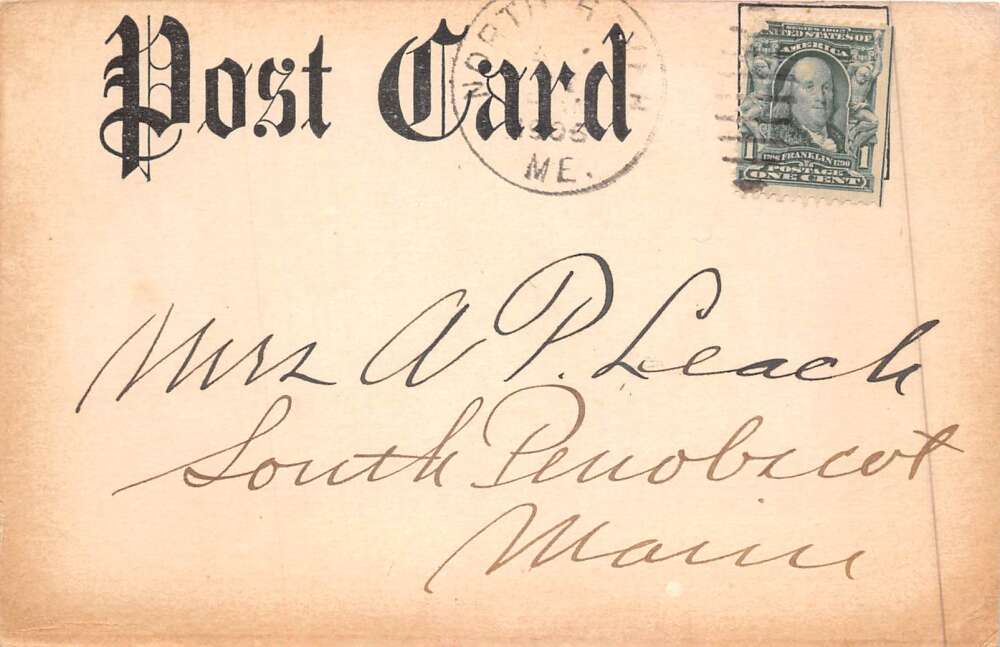 Post Card
NORTH
1905
ME.
SERIES 1902
UNITED STATES OF
AMERICA
1 1706 FRANKLIN 1790 1
POSTAGE
ONE CENT
Mrs A P. Leach
South Penobscot
Maine